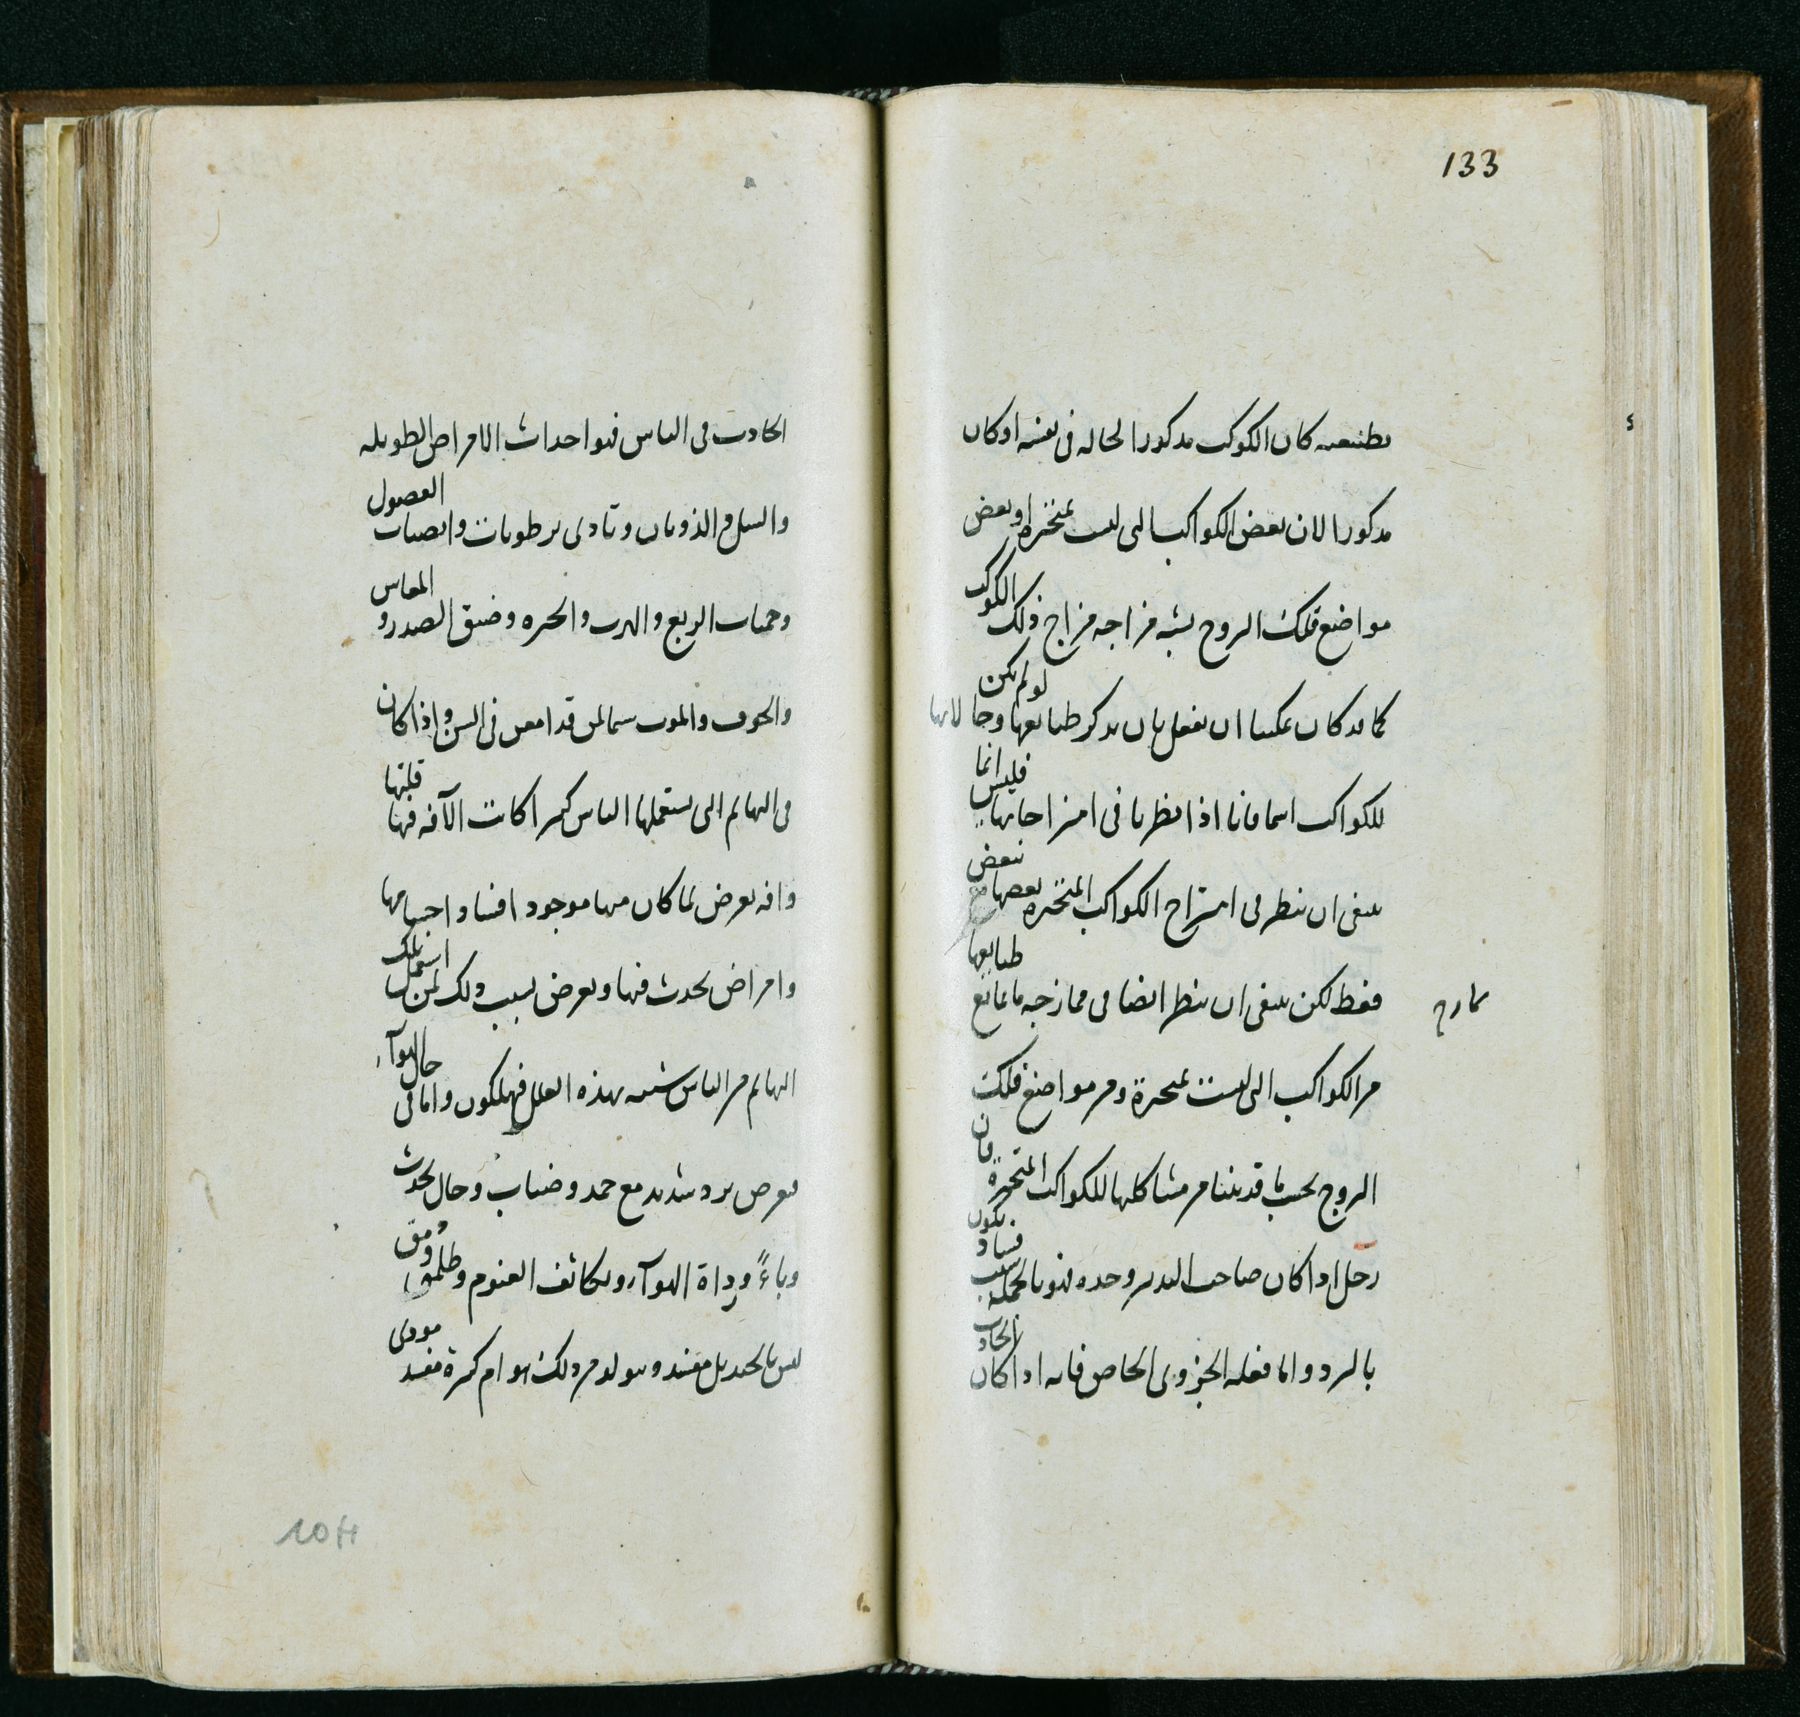 133
بطبيعته كان الكوكب مذكورا لحاله فى نفسه او كان
مذكورا لان بعض الكواكب التى ليست بمتحيرة او بعض
مواضع فلك البروج يشبه مزاجه مزاج ذلك الكوكب
كما قد كان يمكننا ان نفعل بان نذكر طبايعها وحالاتها لو لم يكن
للكواكب اسما فانا اذا نظرنا فى امتزاجاتها فليس انما
ينبغى ان ننظر فى امتزاج الكواكب المتحيرة بعضها مع بعض
فقط لكن ينبغى ان ننظر ايضا فى ممازجه ما يمازج طبايعها
من الكواكب التى ليست بمتحيرة ومن مواضع فلك
البروج بحسب ما قد بينا من مشاكلتها للكواكب المتحيرة فان
زحل اذا كان صاحب التدبير وحده فهو بالجملة سبب فساد يكون
بالبرد واما فعله الجزوى الخاص فانه اذا كان الحادث
الحادث فى الناس فهو احداث الامراض الطويله
والسل والذوبان وتاذى برطوبات وانصباب الفصول
وحميات الربع والهرب والحيره وضيق الصدر و
والخوف والموت سيما لمن قد امعن فى السن واذا كان
فى البهايم التى يستعملها الناس كثيرا كانت الآفه فيها قلتها
وافه تعرض لما كان منها موجودا فساد اجسامها
وامراض تحدث فيها ويعرض بسبب ذلك لمن استعمل تلك
البهايم من الناس شبيه بهذه العلل فيهلكون واما فى حال الهوآء
فيعرض برد شديد مع جمد وضباب وحال يحدث
وباءً ورداة الهوآء وتكاثف الغيوم وظلمة
ليس بالجيد بل مفسد ويتولد من ذلك هوام كثيرة مفسد موذى